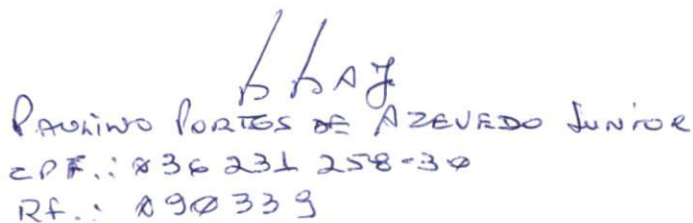 PPAJ
PAULINO PORTOS DE AZEVEDO JUNIOR
CPF.: 036 231 258-30
Rf.: 090339